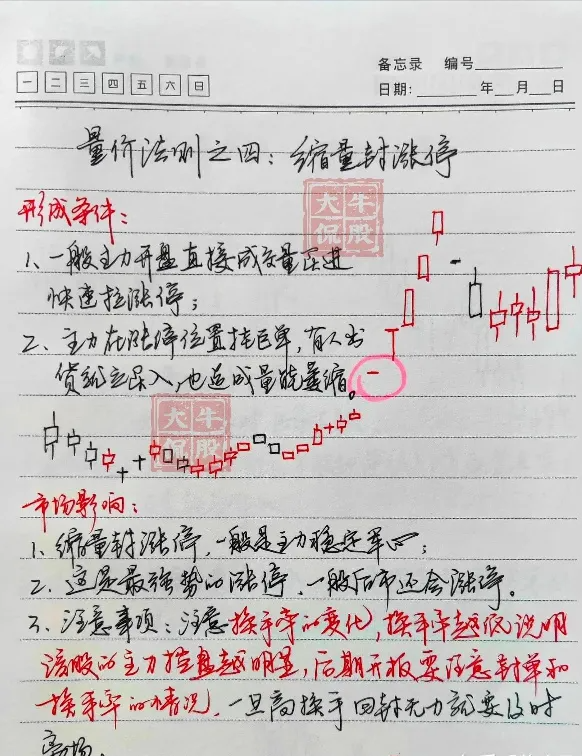 备忘录 编号
一 二 三 四 五 六 日
日期: 年 月 日
量价法则之四：缩量封涨停
大牛
侃股
形成条件：
1、一般主力开盘直接成交量压进
快速拉涨停；
2、主力在涨停位置挂巨单，有人出
货就立吃入，也造成量能萎缩。
大牛
侃股
市场影响：
1、缩量封涨停，一般是主力稳定军心；
2、这是最强势的涨停，一般后市还会涨停。
3、注意事项：注意换手率的变化，换手率越低说明
该股的主力控盘越明显，后期开板要注意封单和
换手率的情况，一旦高换手回封无力就要及时
离场。